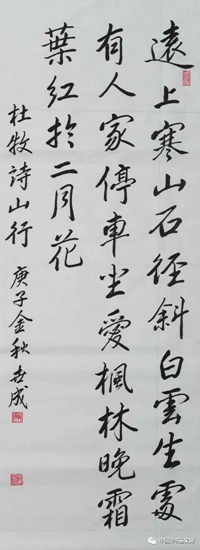 遠上寒山石径斜白雲生處
有人家停車坐愛楓林晚霜
葉红於二月花
杜牧詩山行 庚子金秋 世成